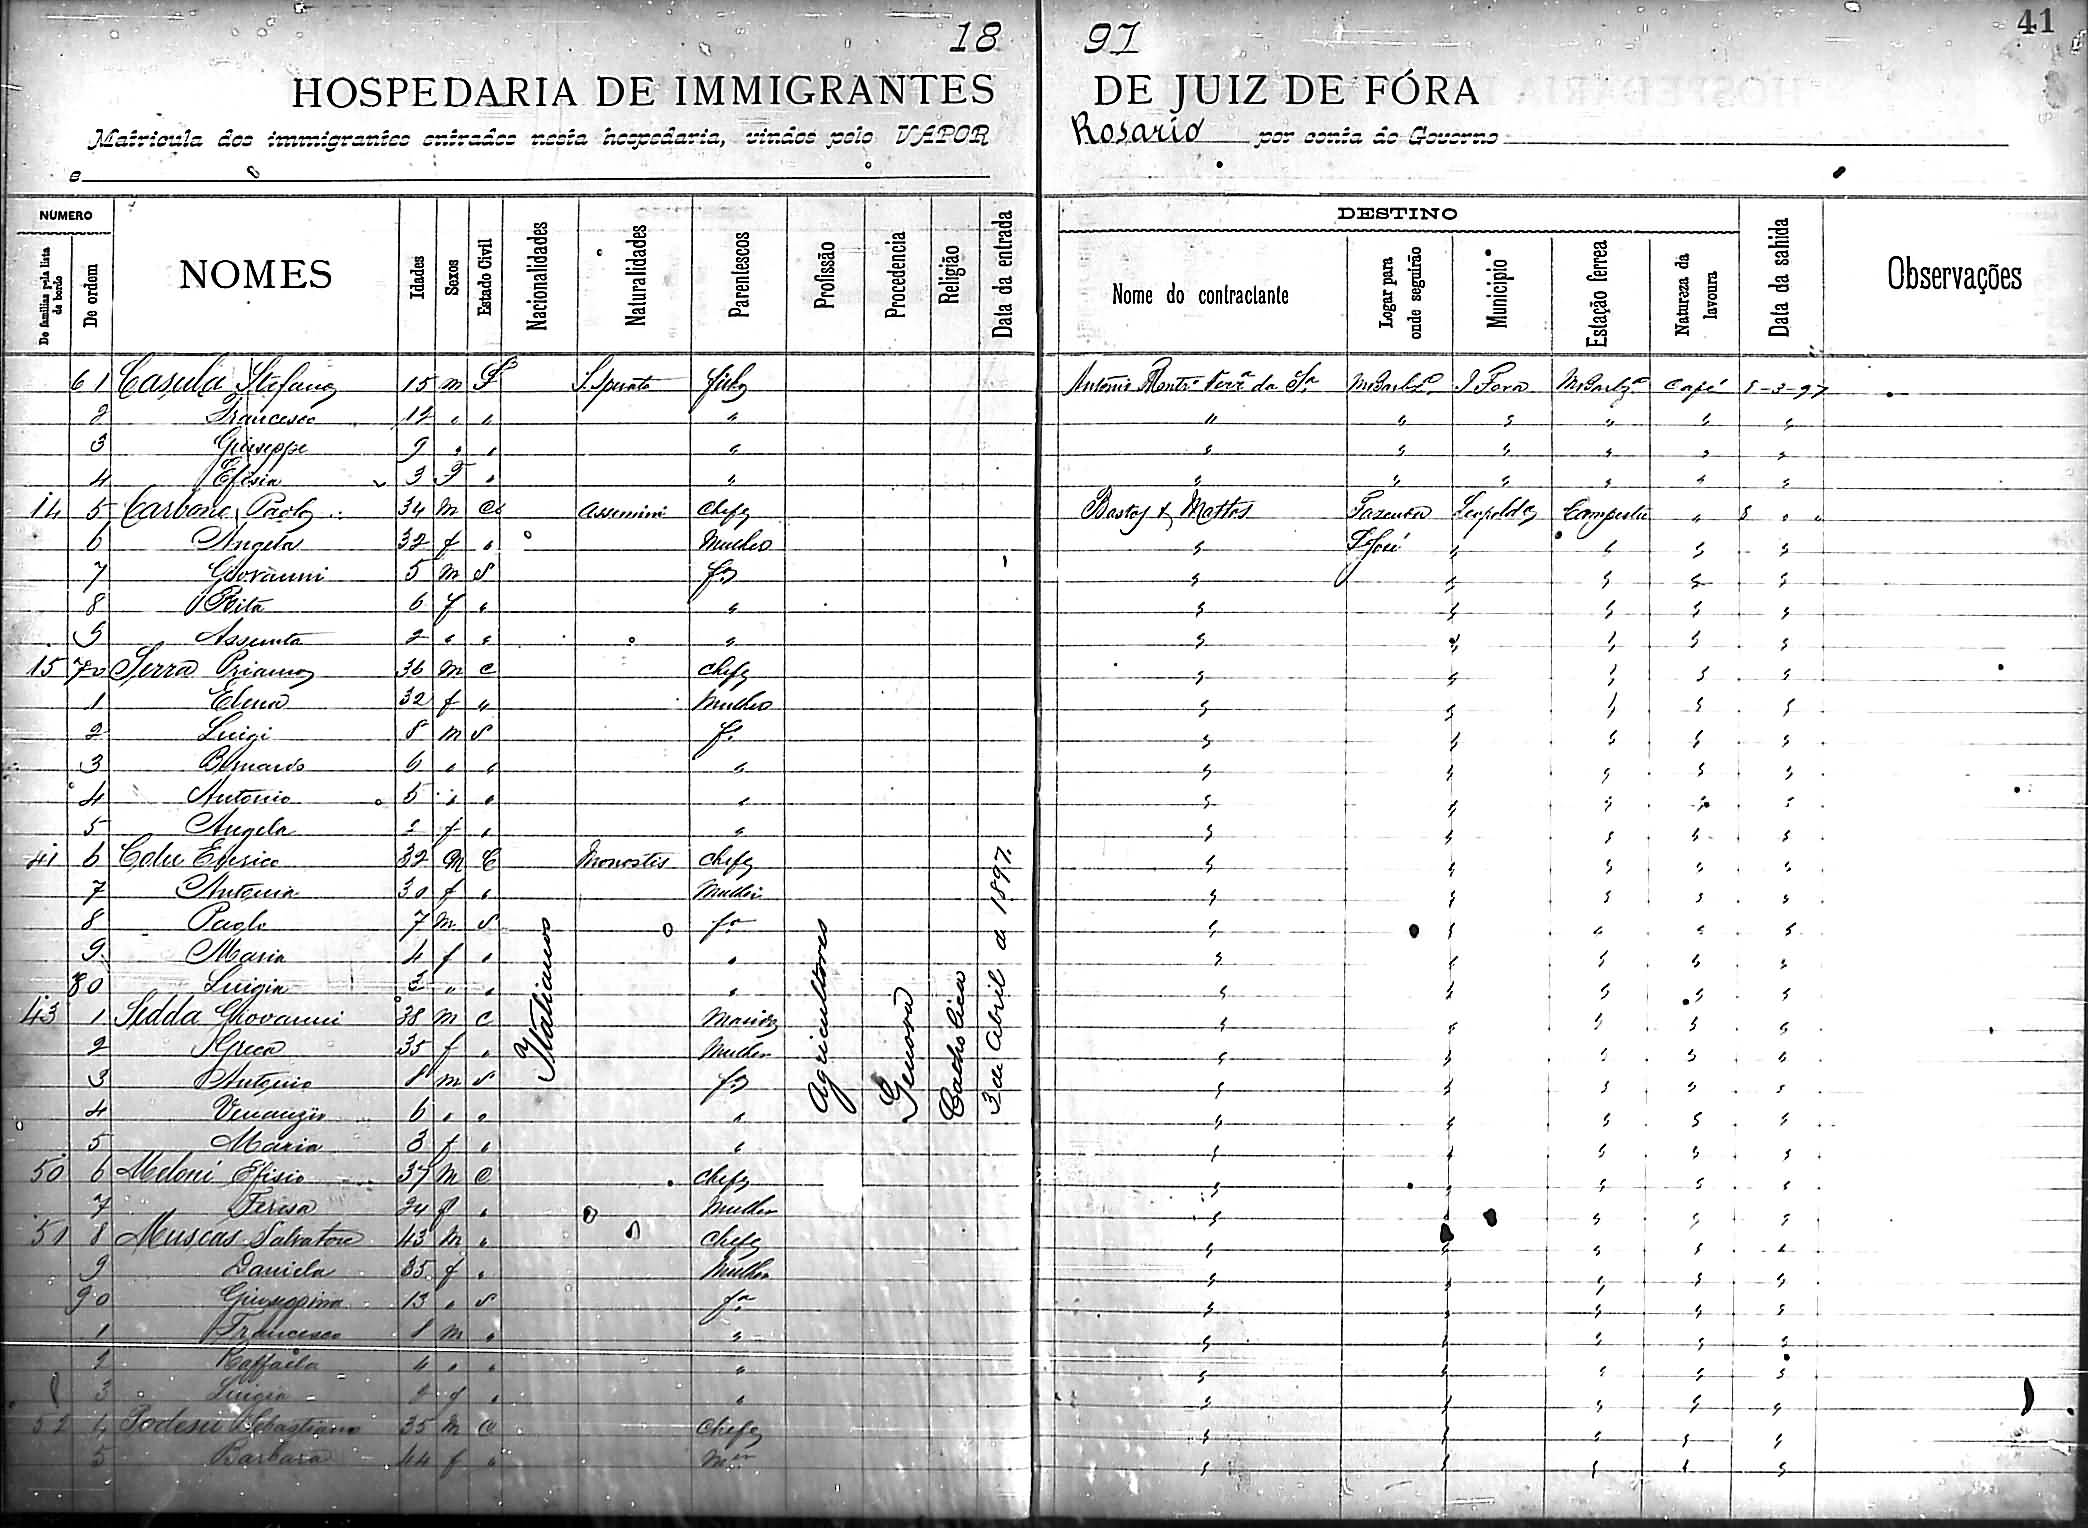 41
18 97
HOSPEDARIA DE IMMIGRANTES DE JUIZ DE FÓRA
Matricula dos immigrantes entrados nesta hospedaria, vindos pelo VAPOR Rosario por conta do Governo
e
NUMERO
De familias pela lista de bordo
De ordem
NOMES
Idades
Sexos
Estado Civil
Nacionalidades
Naturalidades
Parentescos
Profissão
Procedencia
Religião
Data da entrada
DESTINO
Nome do contractante
Logar para onde seguirão
Municipio
Estação ferrea
Natureza da lavoura
Data da sahida
Observações
61 Casula Stefano 15 m S. Sperate filho Antonio da Sa. J. Fora Café 5-3-97
2 Francesco 12 " " " " " " " " "
3 Giuseppe 9 " " " " " " " " "
4 Efisia 3 F " " " " " " " "
14 5 Carbone Paolo 34 m C Assemini Chefe Bastos & Mattos Fazenda Leopolda Campestre " " "
6 Angela 32 f " Mulher " S. José " " " "
7 Giovanni 5 m S fo " " " " "
8 Rita 6 f " " " " " " "
9 Assunta 2 " " " " " " " "
15 70 Serra Priamo 36 m C Chefe " " " " "
1 Elena 32 f " Mulher " " " " "
2 Luigi 8 m S fo " " " " "
3 Bernardo 6 " " " " " " " "
4 Antonio 5 " " " " " " " "
5 Angela 2 f " " " " " " "
41 6 Cohe Enerico 32 m C Monastis Chefe " " " " "
7 Antonia 30 f " Mulher " " " " "
8 Paolo 7 m S fo " " " " "
9 Maria 4 f " " " " " " "
80 Luigia 3 " " " " " " " "
43 1 Sedda Giovanni 38 m C Marido " " " " "
2 Greca 35 f " Mulher " " " " "
3 Antonio 8 m S fo " " " " "
4 Venanzio 6 " " " " " " " "
5 Maria 3 f " " " " " " "
50 6 Meloni Efisio 37 m C Chefe " " " " "
7 Teresa 24 f " Mulher " " " " "
51 8 Muscas Salvatore 43 m " Chefe " " " " "
9 Daniela 35 f " Mulher " " " " "
90 Giuseppina 13 " S fa " " " " "
1 Francesco 8 m " " " " " " "
2 Raffaela 4 " " " " " " " "
3 Luigia 2 f " " " " " " "
52 4 Podesu Sebastiano 35 m C Chefe " " " " "
5 Barbara 44 f " Mer " " " " "
Italianos
Agricultores
Genova
Catholica
3 de Abril de 1897.